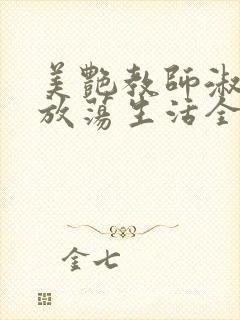 美艷教師淑
放蕩生活全
金七